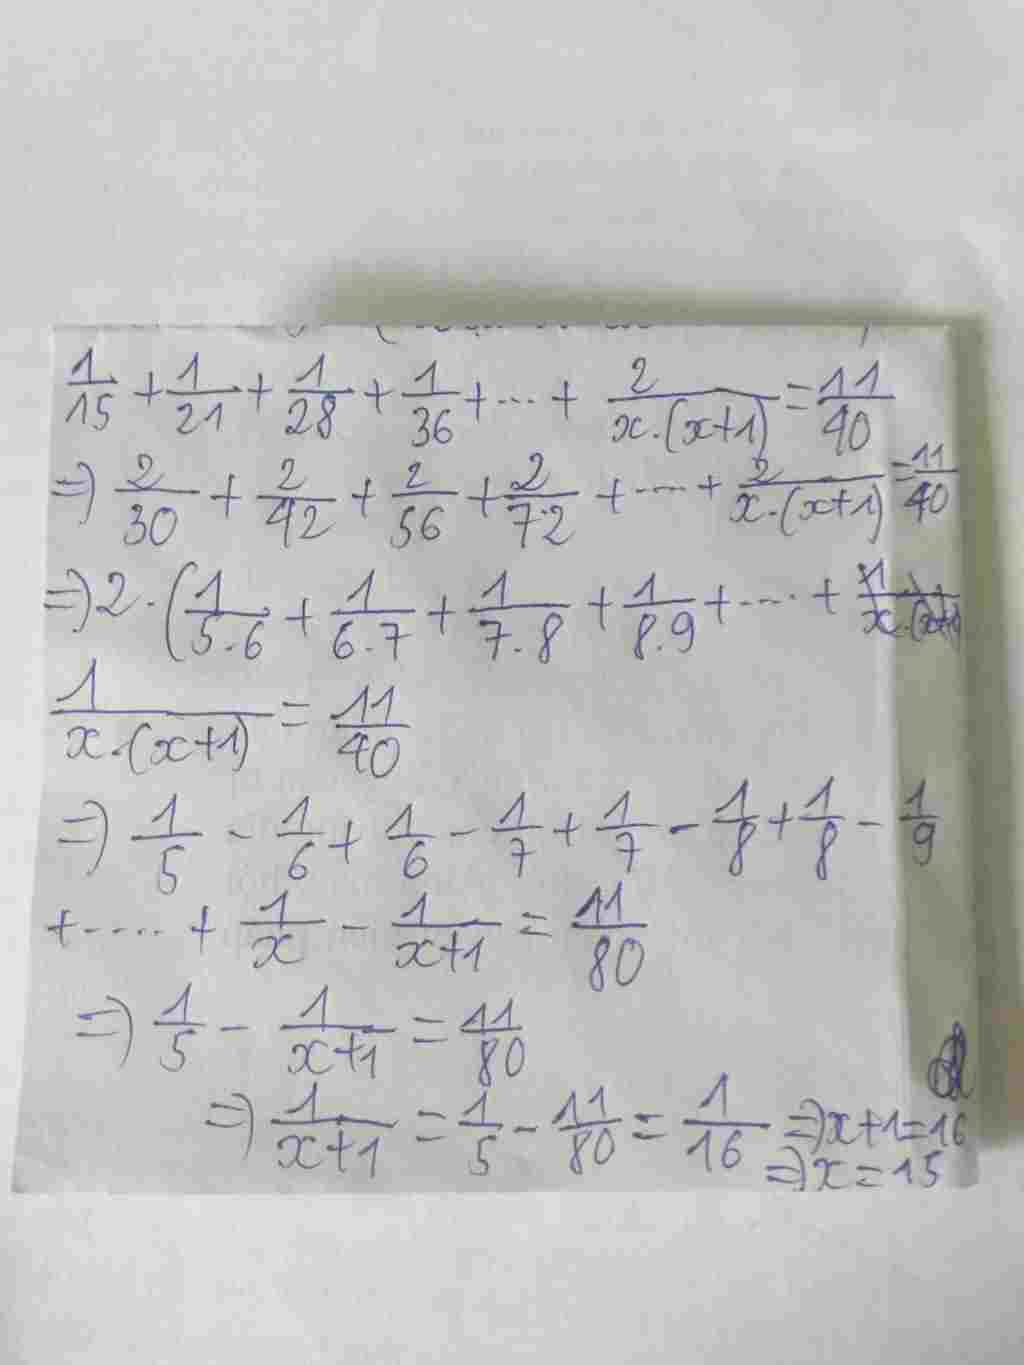 1/15 + 1/21 + 1/28 + 1/36 + ... + 2/x.(x+1) = 11/40
=) 2/30 + 2/42 + 2/56 + 2/72 + .... + 2/x.(x+1) = 11/40
=) 2.(1/5.6 + 1/6.7 + 1/7.8 + 1/8.9 + .... +
1/x.(x+1) = 11/40
=) 1/5 - 1/6 + 1/6 - 1/7 + 1/7 - 1/8 + 1/8 - 1/9
+ .... + 1/x - 1/x+1 = 11/80
=) 1/5 - 1/x+1 = 11/80
=) 1/x+1 = 1/5 - 11/80 = 1/16 =) x+1=16
=) x = 15